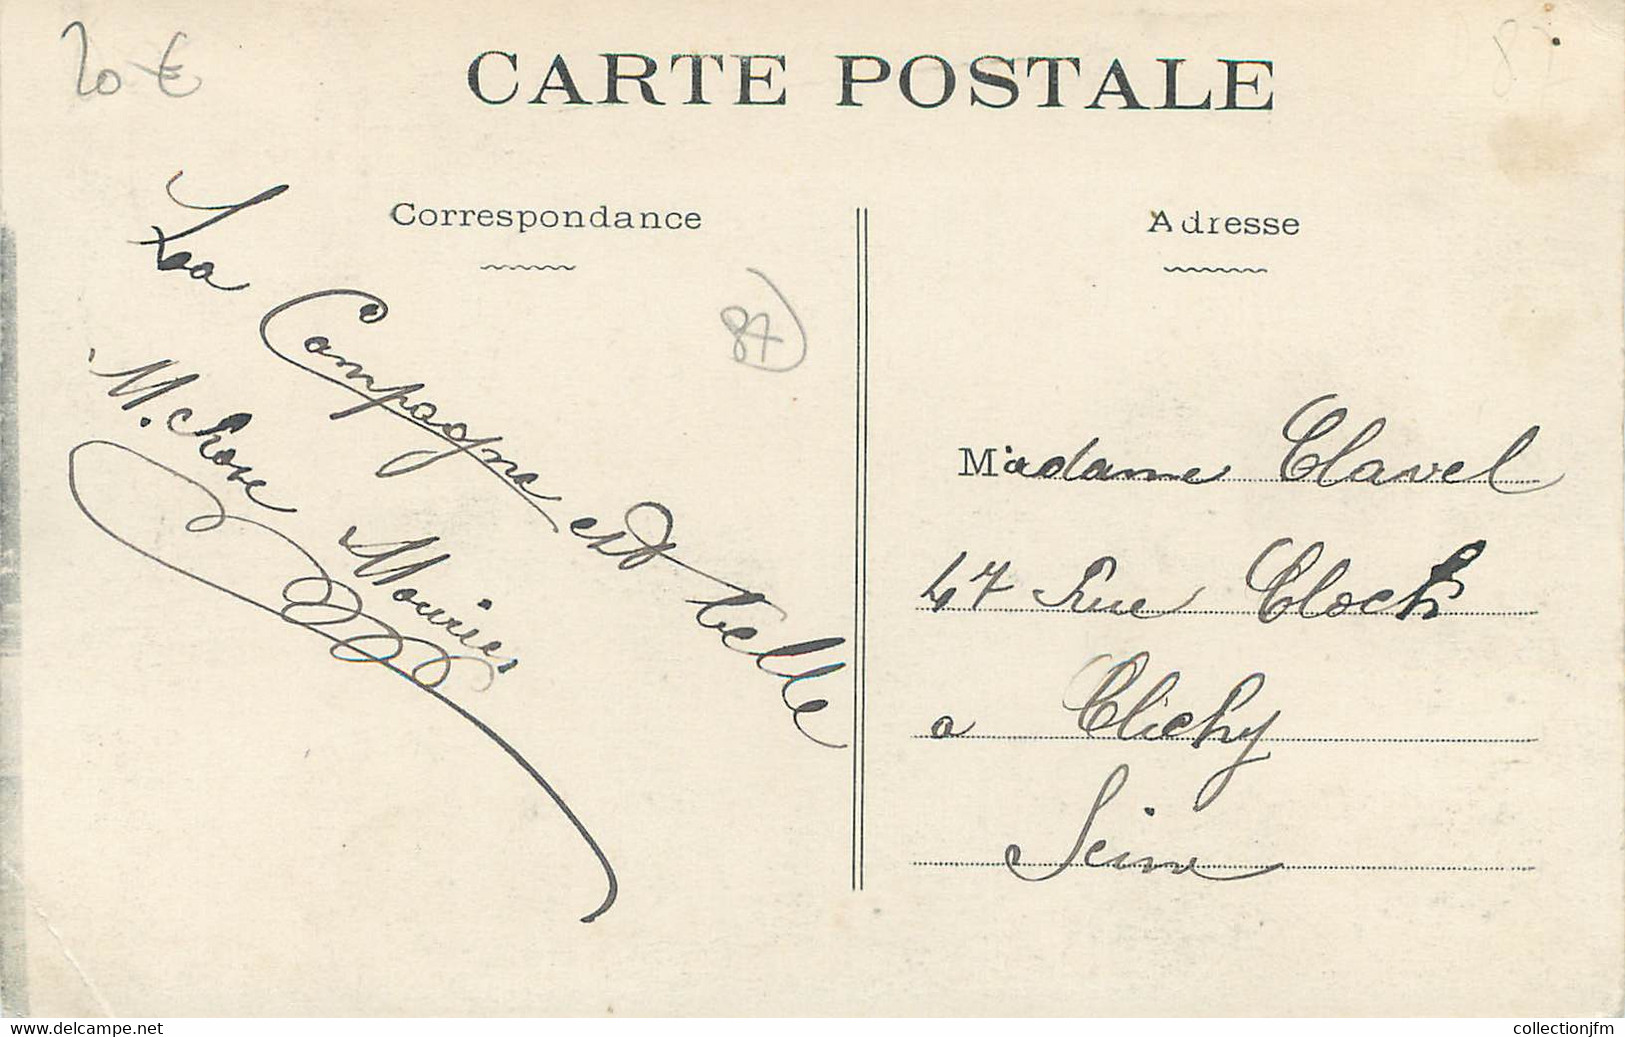 20 €
87
CARTE POSTALE
Correspondance
Adresse
La Campagne est belle
M. Mourier
87
Madame Clavel
47 Rue Cloch
a Clichy
Seine
www.delcampe.net
collectionjfm